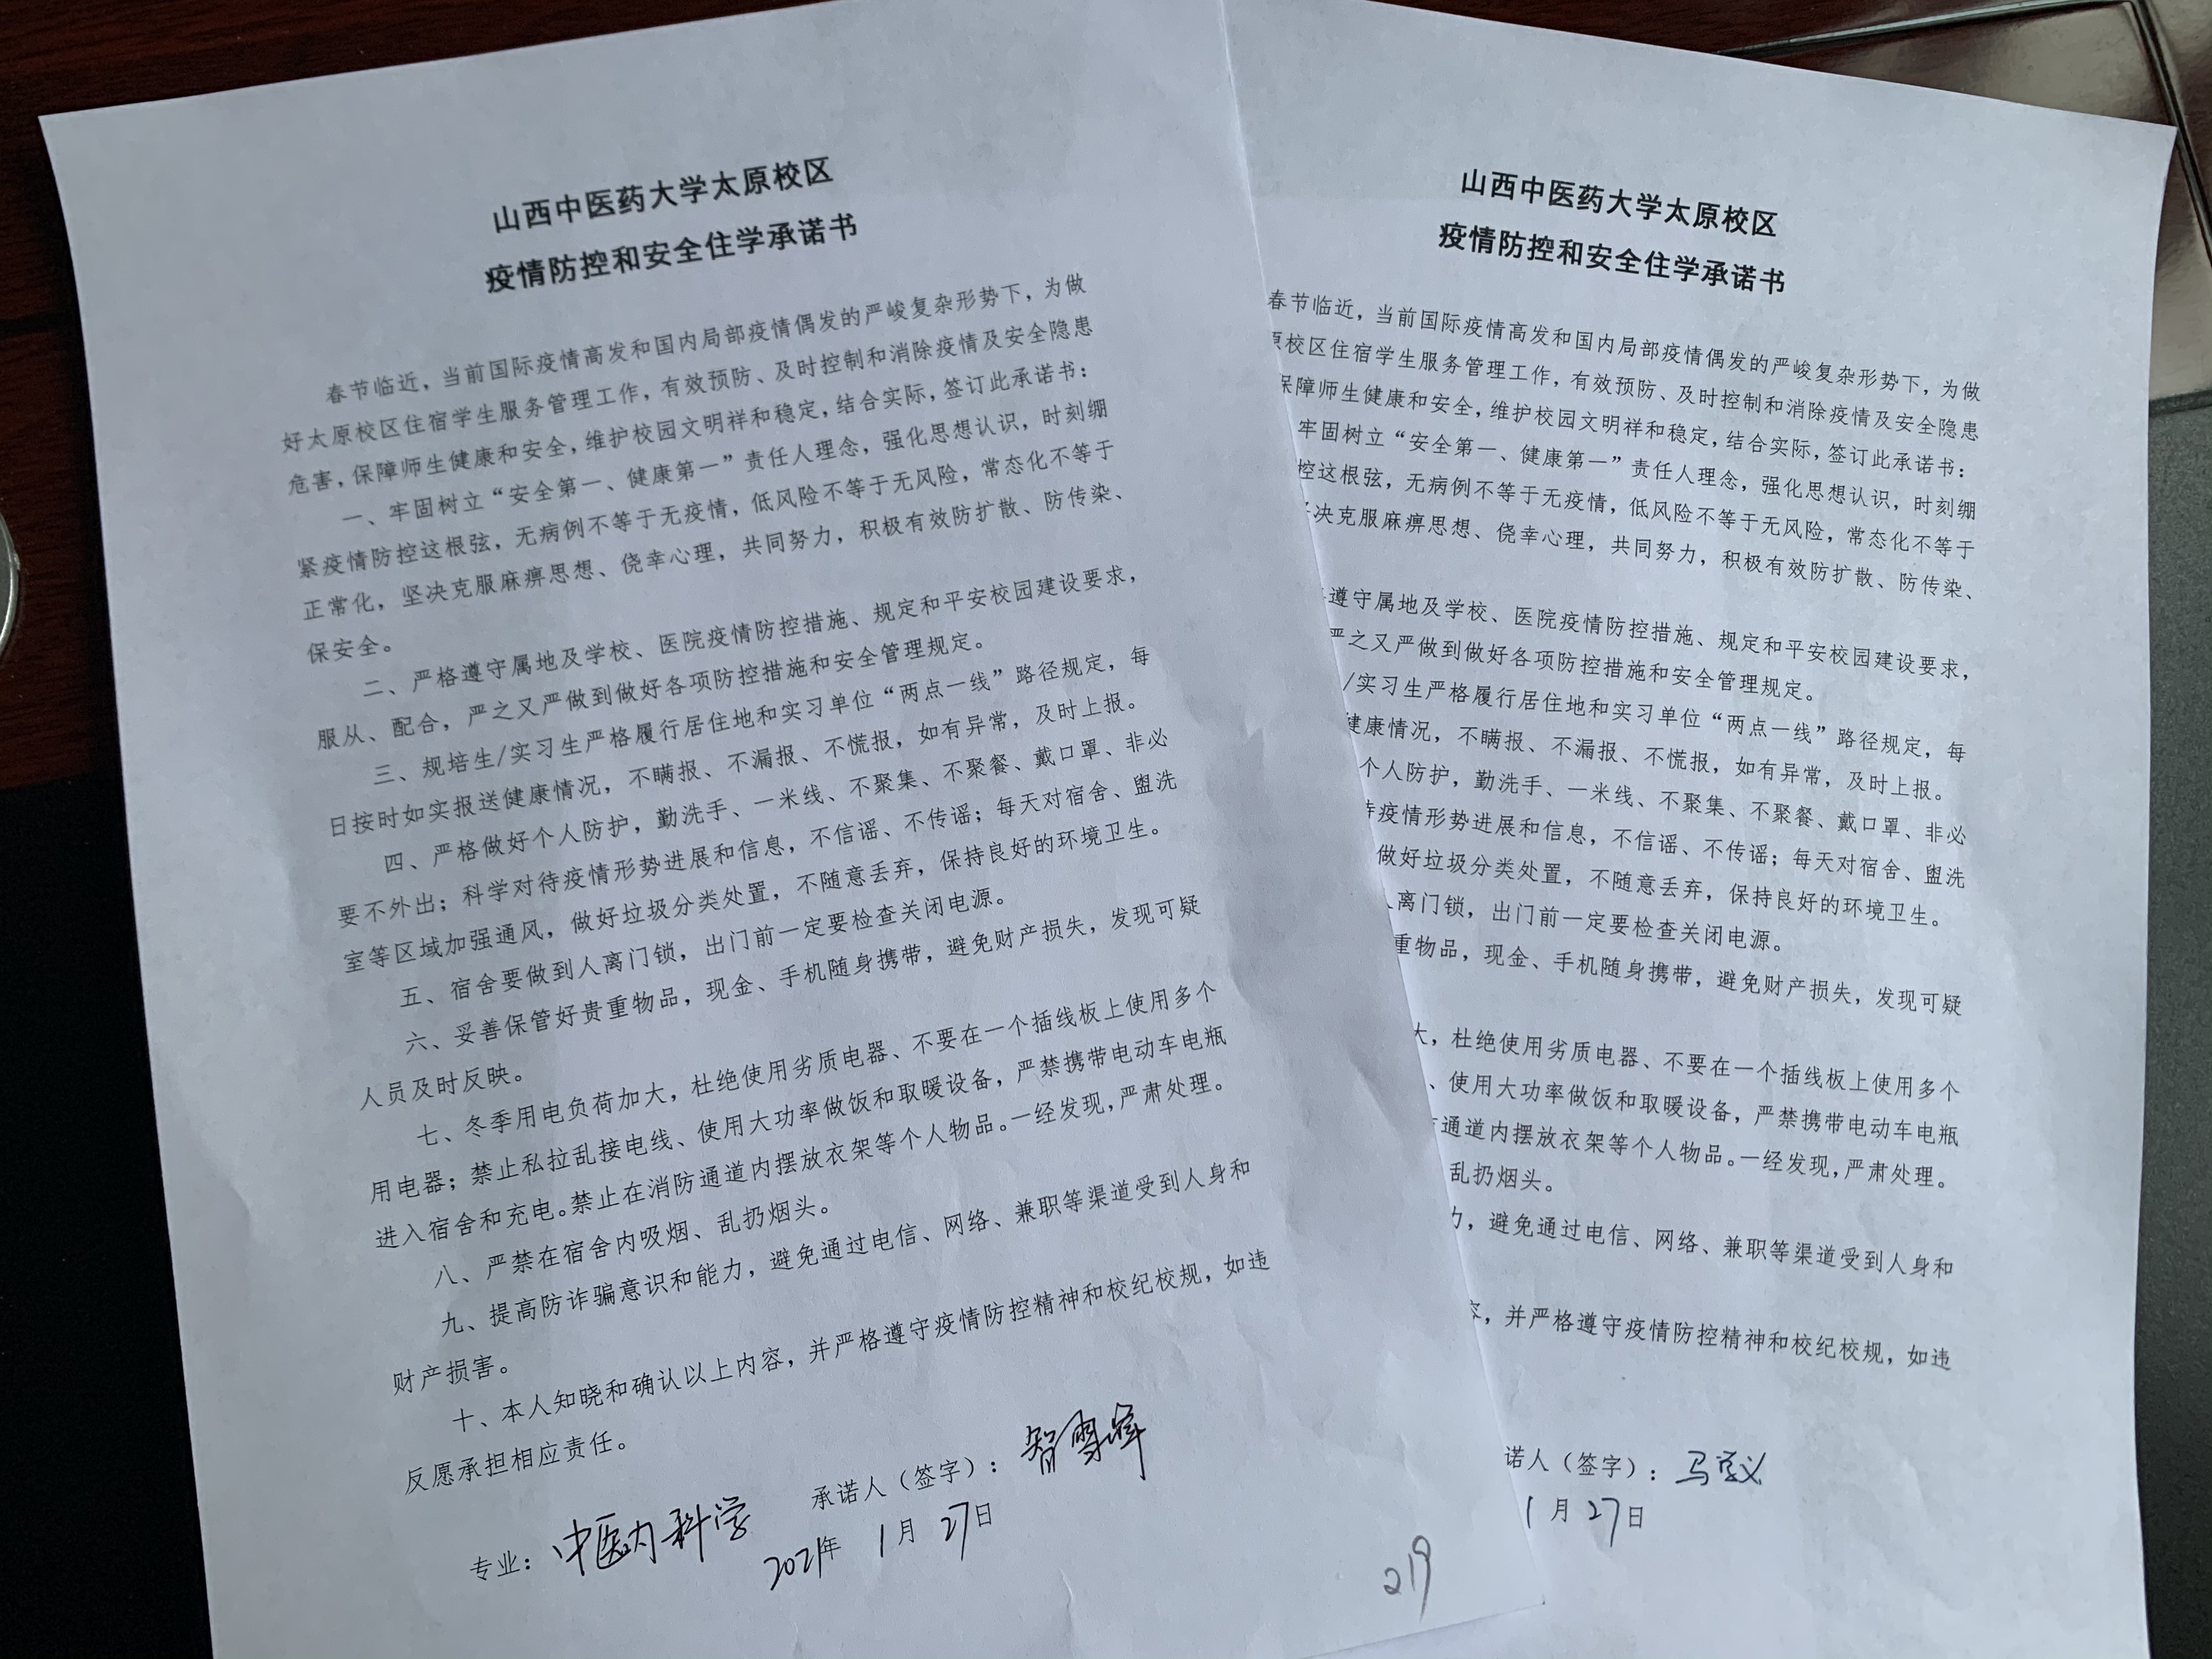 山西中医药大学太原校区
疫情防控和安全住学承诺书
春节临近，当前国际疫情高发和国内局部疫情偶发的严峻复杂形势下，为做
好太原校区住宿学生服务管理工作，有效预防、及时控制和消除疫情及安全隐患
危害，保障师生健康和安全，维护校园文明祥和稳定，结合实际，签订此承诺书：
一、牢固树立“安全第一、健康第一”责任人理念，强化思想认识，时刻绷
紧疫情防控这根弦，无病例不等于无疫情，低风险不等于无风险，常态化不等于
正常化，坚决克服麻痹思想、侥幸心理，共同努力，积极有效防扩散、防传染、
保安全。
二、严格遵守属地及学校、医院疫情防控措施、规定和平安校园建设要求，
服从、配合，严之又严做到做好各项防控措施和安全管理规定。
三、规培生/实习生严格履行居住地和实习单位“两点一线”路径规定，每
日按时如实报送健康情况，不瞒报、不漏报、不慌报，如有异常，及时上报。
四、严格做好个人防护，勤洗手、一米线、不聚集、不聚餐、戴口罩、非必
要不外出；科学对待疫情形势进展和信息，不信谣、不传谣；每天对宿舍、盥洗
室等区域加强通风，做好垃圾分类处置，不随意丢弃，保持良好的环境卫生。
五、宿舍要做到人离门锁，出门前一定要检查关闭电源。
六、妥善保管好贵重物品，现金、手机随身携带，避免财产损失，发现可疑
人员及时反映。
七、冬季用电负荷加大，杜绝使用劣质电器、不要在一个插线板上使用多个
用电器；禁止私拉乱接电线、使用大功率做饭和取暖设备，严禁携带电动车电瓶
进入宿舍和充电。禁止在消防通道内摆放衣架等个人物品。一经发现，严肃处理。
八、严禁在宿舍内吸烟、乱扔烟头。
九、提高防诈骗意识和能力，避免通过电信、网络、兼职等渠道受到人身和
财产损害。
十、本人知晓和确认以上内容，并严格遵守疫情防控精神和校纪校规，如违
反愿承担相应责任。
承诺人（签字）：智
专业：中医内科学
2021年 1月 27日
219
山西中医药大学太原校区
疫情防控和安全住学承诺书
春节临近，当前国际疫情高发和国内局部疫情偶发的严峻复杂形势下，为做
原校区住宿学生服务管理工作，有效预防、及时控制和消除疫情及安全隐患
保障师生健康和安全，维护校园文明祥和稳定，结合实际，签订此承诺书：
牢固树立“安全第一、健康第一”责任人理念，强化思想认识，时刻绷
控这根弦，无病例不等于无疫情，低风险不等于无风险，常态化不等于
决克服麻痹思想、侥幸心理，共同努力，积极有效防扩散、防传染、
遵守属地及学校、医院疫情防控措施、规定和平安校园建设要求，
严之又严做到做好各项防控措施和安全管理规定。
/实习生严格履行居住地和实习单位“两点一线”路径规定，每
健康情况，不瞒报、不漏报、不慌报，如有异常，及时上报。
个人防护，勤洗手、一米线、不聚集、不聚餐、戴口罩、非必
待疫情形势进展和信息，不信谣、不传谣；每天对宿舍、盥洗
做好垃圾分类处置，不随意丢弃，保持良好的环境卫生。
离门锁，出门前一定要检查关闭电源。
重物品，现金、手机随身携带，避免财产损失，发现可疑
大，杜绝使用劣质电器、不要在一个插线板上使用多个
、使用大功率做饭和取暖设备，严禁携带电动车电瓶
通道内摆放衣架等个人物品。一经发现，严肃处理。
乱扔烟头。
力，避免通过电信、网络、兼职等渠道受到人身和
容，并严格遵守疫情防控精神和校纪校规，如违
诺人（签字）：马
1月 27日